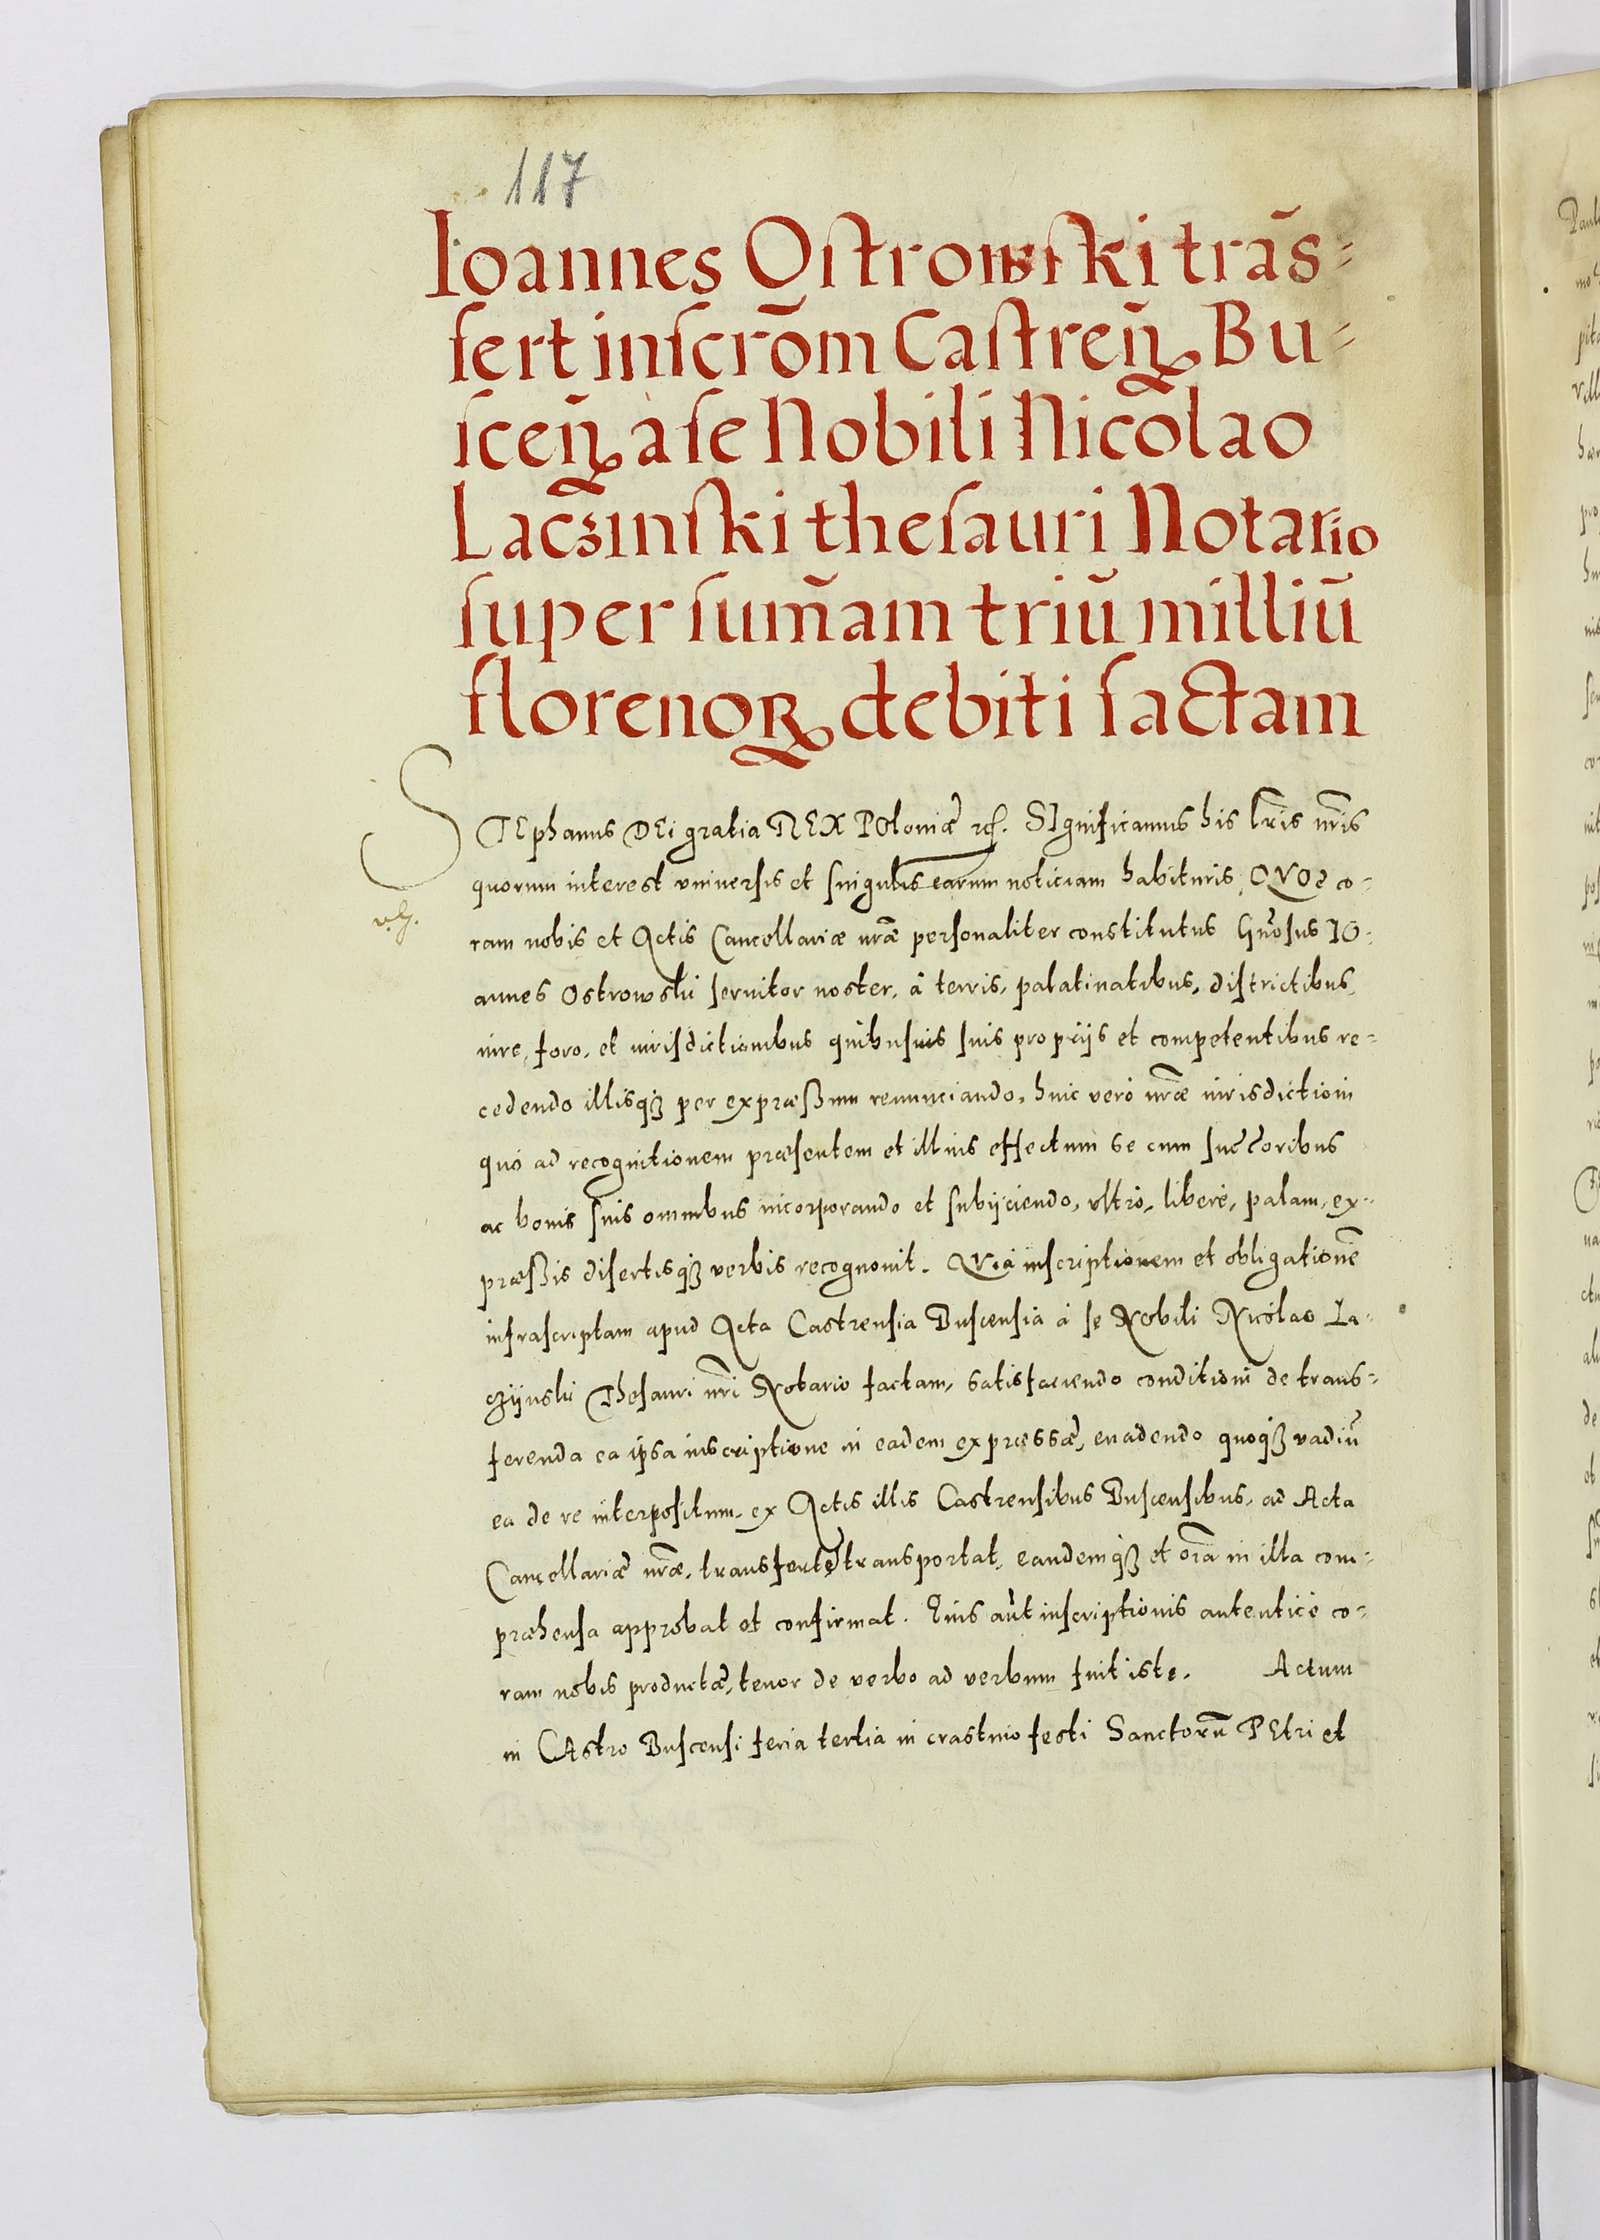 117
Ioannes Ostrowski trãs-
fert inscrõm Castreñ Bu-
sceñ a se Nobili Nicolao
Laczinski thesauri Notario
super sum̃am triũ milliũ
florenoꝝ debiti factam
STEphanus DEi gratia REX POloniæ etc. SIgnificamus his lr̃is nr̃is
quorum interest vniuersis et singulis earum noticiam habituris, QVOd co-
ram nobis et Actis Cancellariæ nr̃æ personaliter constitutus Gn̄osus IO-
annes Ostrowski seruitor noster, à terris, palatinatibus, districtibus,
iure, foro, et iurisdictionibus quibusuis suis proprijs et competentibus re-
cedendo illisqꝫ per expræßum renunciando, huic verò nr̃æ iurisdictioni
quò ad recognitionem præsentem et illius effectum se cum suc̃c̃oribus
ac bonis suis omnibus incorporando et subijciendo, vltrò, liberè, palam, ex-
præßis disertisqꝫ verbis recognouit. QVia inscriptionem et obligationẽ
infrascriptam apud Acta Castrensia Buscensia à se Nobili Nicolao La-
czijnski Thesauri nr̃i Notario factam, satisfaciendo conditioni de trans-
ferenda ea ipsa inscriptione in eadem expræssæ, euadendo quoqꝫ vadiũ
ea de re interpositum, ex Actis illis Castrensibus Buscensibus, ad Acta
Cancellariæ nr̃æ, transfert et transportat, eandemqꝫ et oĩa in illa com-
præhensa approbat et confirmat. Eius aũt inscriptionis autenticè co-
ram nobis productæ, tenor de verbo ad verbum fuit iste. Actum
in CAstro Buscensi feria tertia in crastino festi Sanctorũ PEtri et